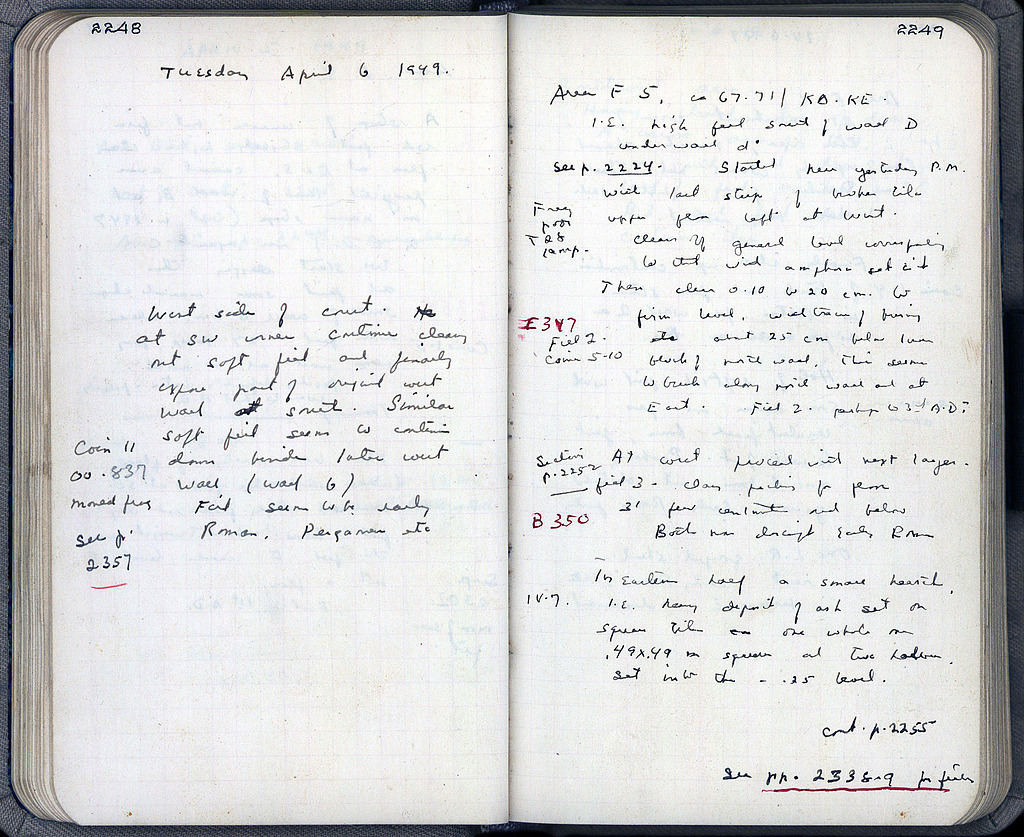 2248
Tuesday April 6 1949.
West side of court.
at SW corner continue clearing
out soft fill and finally
expose part of original west
wall at south. Similar
soft fill seems to continue
down beside later west
wall (wall G)
Fill seems to be early
Roman. Pergamene etc
Coin 11
00.837
Mould frag
see p.
2357
2249
Area F 5, ca 67.71 / KD.KE.
I.E. high fill south of wall D
under wall d.
See p. 2224 Started here yesterday P.M.
with last strip of broken tile
upper floor left at west.
Frag
poor
T 28
lamp.
clean off general level corresponding
to that with amphora set in it
Then clear 0.10 to 20 cm. to
firm level, with traces of burning
about 25 cm below
E347
Fill 2.
Coins 5-10
of north wall, this seems
to along north wall at
East. Fill 2. perhaps to 3rd A.D?
Section
p.2252
At west proceed with next layer.
fill 3 - clay packing for floor
3' few and below
B 350
Both non descript Early Roman
In Eastern half a small hearth,
IV.7.
I.E. heavy deposit of ash set on
square tiles one whole one
.49x.49 m square and two broken,
set into the -.25 level.
cont. p.2255
See pp. 2338-9 for finds